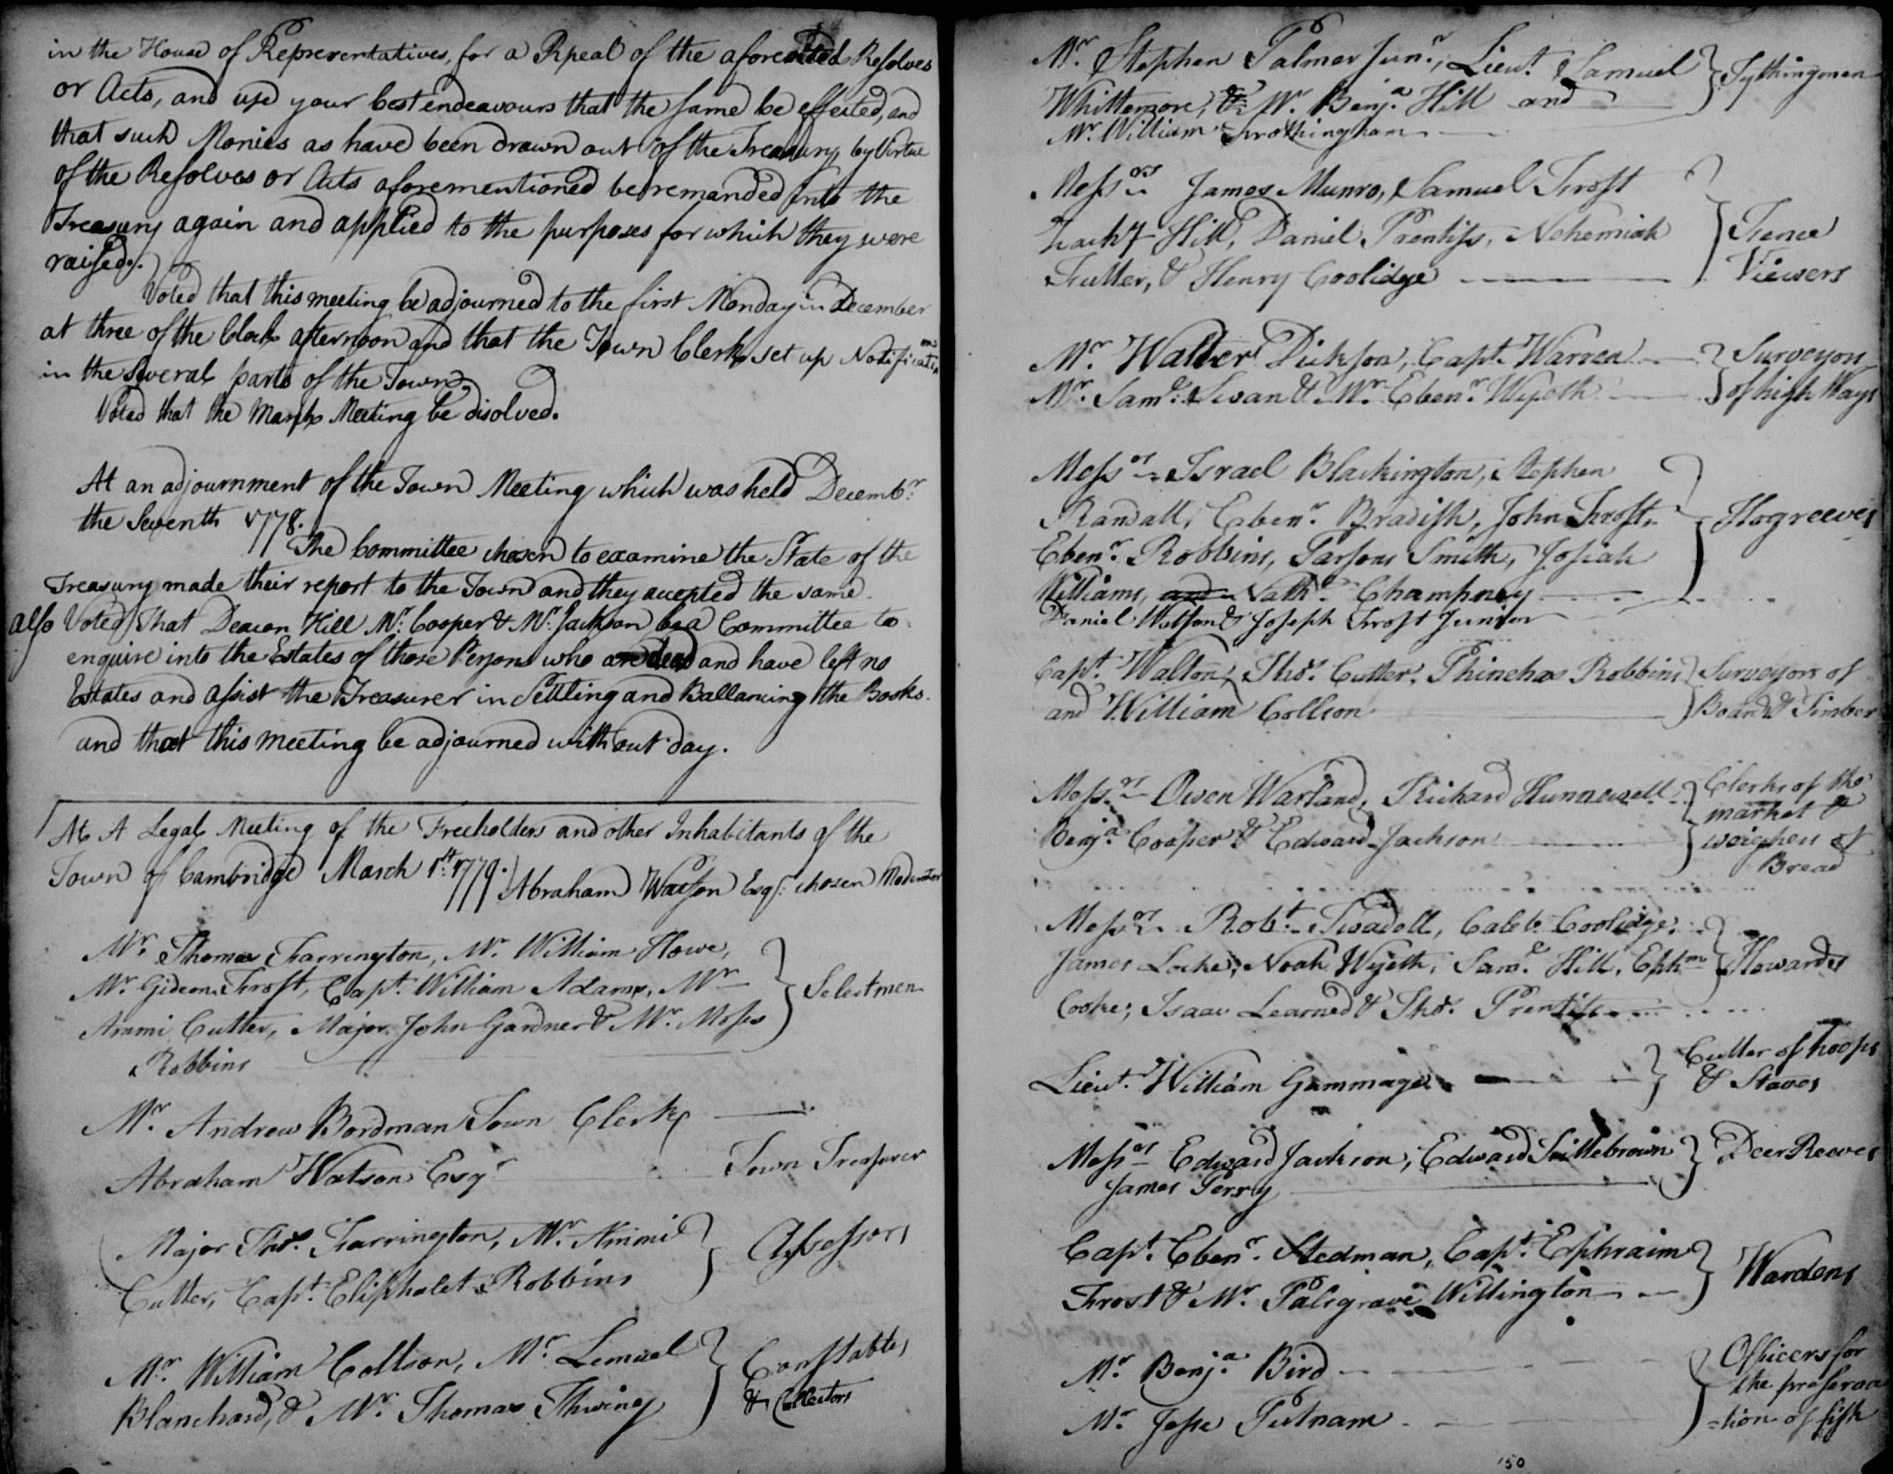 in the House of Representatives, for a Repeal of the aforecited Resolves
or Acts, and use your best endeavours that the same be effected, and
that such Monies as have been drawn out of the Treasury by Virtue
of the Resolves or Acts aforementioned be remanded into the
Treasury again and applied to the purposes for which they were
raised.
Voted that this meeting be adjourned to the first Monday in December
at three of the Clock afternoon and that the Town Clerk set up Notifications
in the several parts of the Town.
Voted that the March Meeting be disolved.
At an adjournment of the Town Meeting which was held Decembr.
the Seventh 1778.
The Committee chosen to examine the State of the
Treasury made their report to the Town and they accepted the same
also Voted That Deacon Hill Mr. Cooper & Mr. Jackson be a Committee to
enquire into the Estates of those Persons who are dead and have left no
Estates and assist the Treasurer in Settling and Ballancing the Books.
and that this meeting be adjourned without day.
At A Legal Meeting of the Freeholders and other Inhabitants of the
Town of Cambridge March 1st. 1779. Abraham Watson Esqr. chosen Moderator
Mr. Thomas Farrington, Mr. William Howe,
Mr. Gideon Frost, Capt. William Adams, Mr
Ammi Cutter, Major John Gardner & Mr. Moses
Robbins
Selectmen
Mr. Andrew Bordman Town Clerk
Abraham Watson Esqr Town Treasurer
Major Thos. Farrington, Mr. Ammi
Cutter, Capt. Eliphalet Robbins
Assessors
Mr. William Collson, Mr. Lemuel
Blanchard, & Mr. Thomas Thwing
Constables
& Collectors
Mr. Stephen Palmer Junr., Lieut. Samuel
Whittemore, & Mr. Benja. Hill and
Mr. William Frothingham
Tythingmen
Messrs. James Munro, Samuel Frost
Zachy Hill, Daniel Prentiss, Nehemiah
Cutter, & Henry Coolidge
Fence
Viewers
Mr. Walter Dickson, Capt. Warren
Mr. Saml. Swan & Mr. Ebenr. Wyeth
Surveyors
of high Ways
Messrs. Israel Blackington, Stephen
Randall, Ebenr. Bradish, John Frost,
Ebenr. Robbins, Parsons Smith, Josiah
Williams, and Nathl. Champney
Daniel Watson & Joseph Frost Junior
Hogreeves
Capt. Walton, Thos. Cutter, Phinehas Robbins
and William Collson
Surveyors of
Board & Timber
Messrs. Owen Warland, Richard Hunnewell
Benja. Cooper & Edward Jackson
Clerks of the
market &
weighers of
Bread
Messrs. Robt. Twadell, Caleb Coolidge,
James Locke, Noah Wyeth, Saml. Hill, Ephm
Cooke, Isaac Learned & Thos. Prentiss
Howards
Lieut. William Gammage
Culler of hoops
& Staves
Messrs Edward Jackson, Edward Tuttlebrown
James Perry
Deer Reeves
Capt. Ebenr. Stedman, Capt. Ephraim
Frost & Mr. Palsgrave Wellington
Wardens
Mr Benja. Bird
Mr Jesse Putnam
Officers for
the preserva
-tion of fish
150